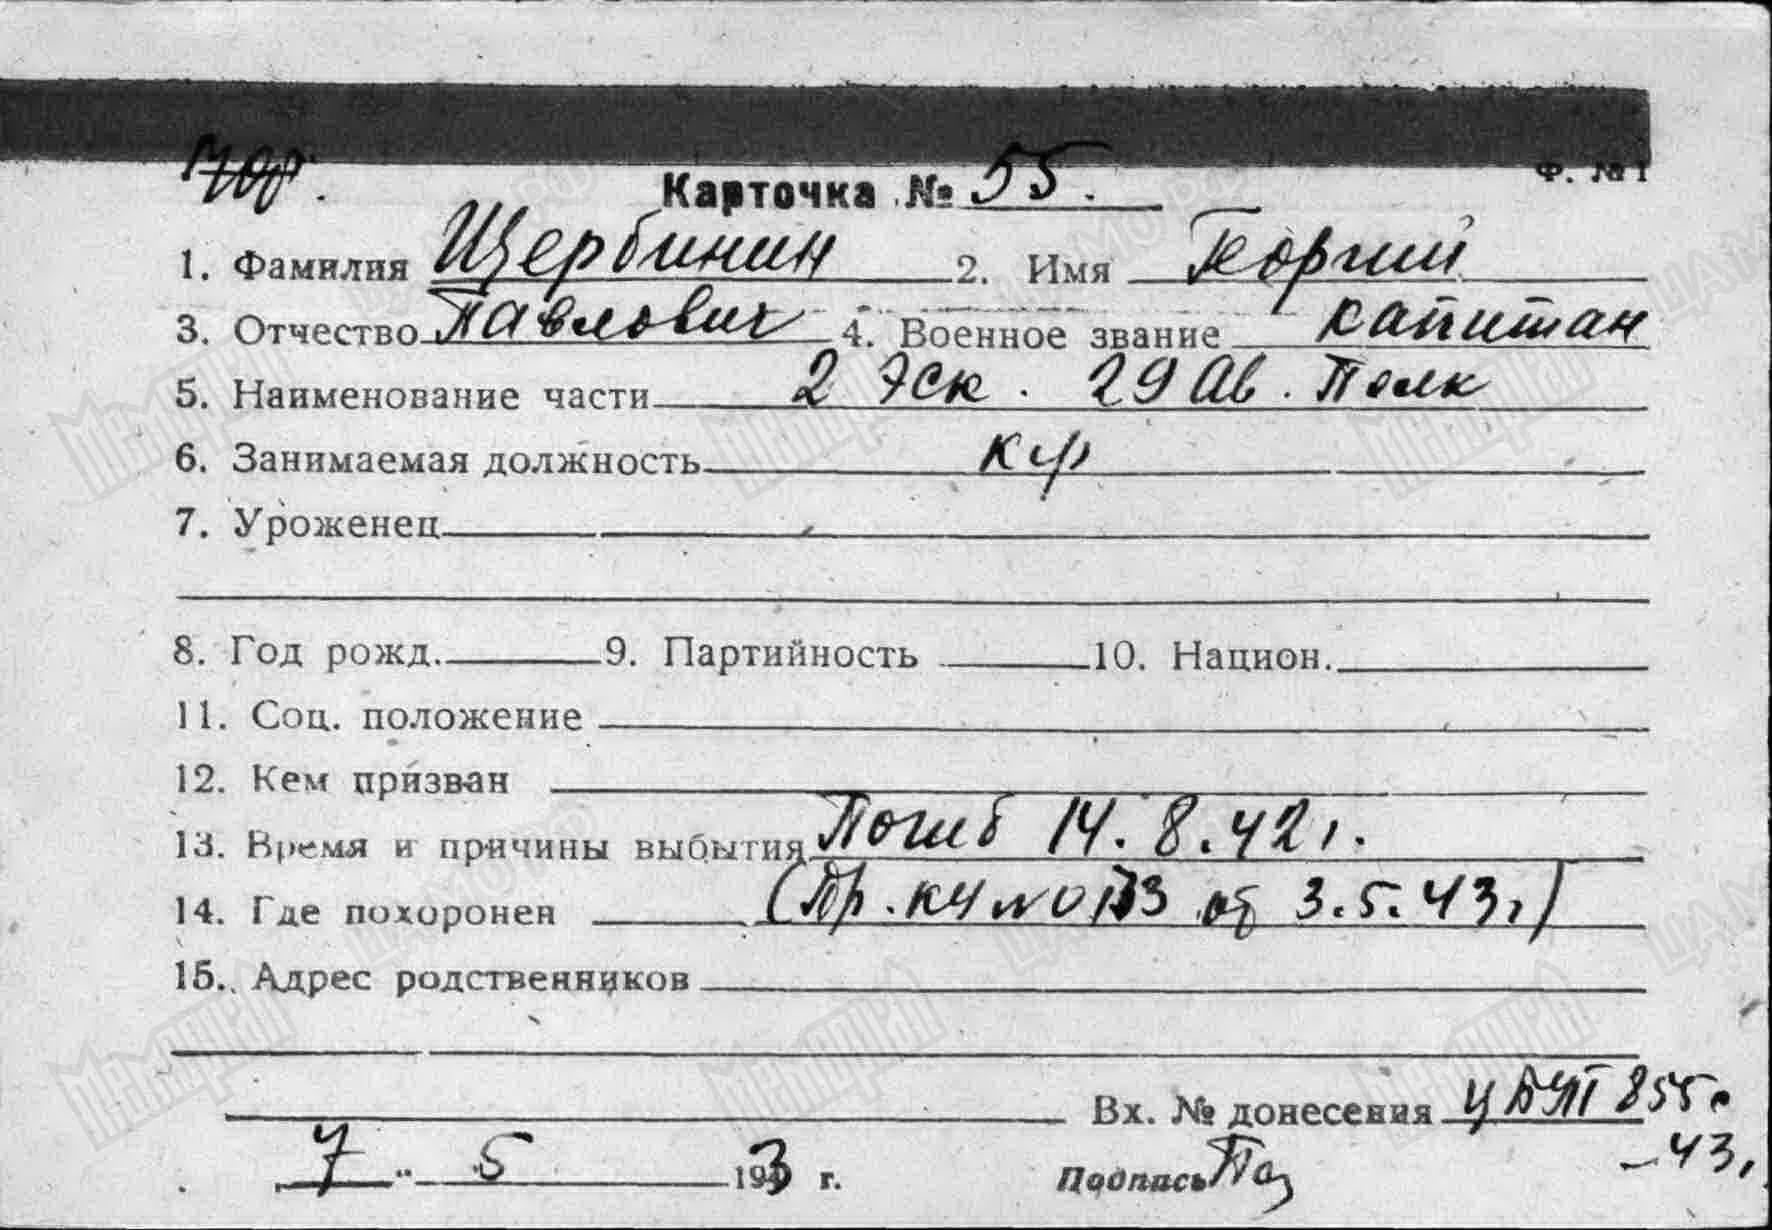 Ф. № 1
Карточка № 55.
1. Фамилия Щербинин 2. Имя Георгий
3. Отчество Павлович 4. Военное звание капитан
5. Наименование части 2 Эск. 29 Ав. Полк
6. Занимаемая должность к-р
7. Уроженец
8. Год рожд. 9. Партийность 10. Национ.
11. Соц. положение
12. Кем призван
13. Время и причины выбытия Погиб 14.8.42 г.
14. Где похоронен (Пр. КЧ № 0133 от 3.5.43 г.)
15. Адрес родственников
Вх. № донесения 855с
-43 г.
7 " 5 1943 г. Подпись